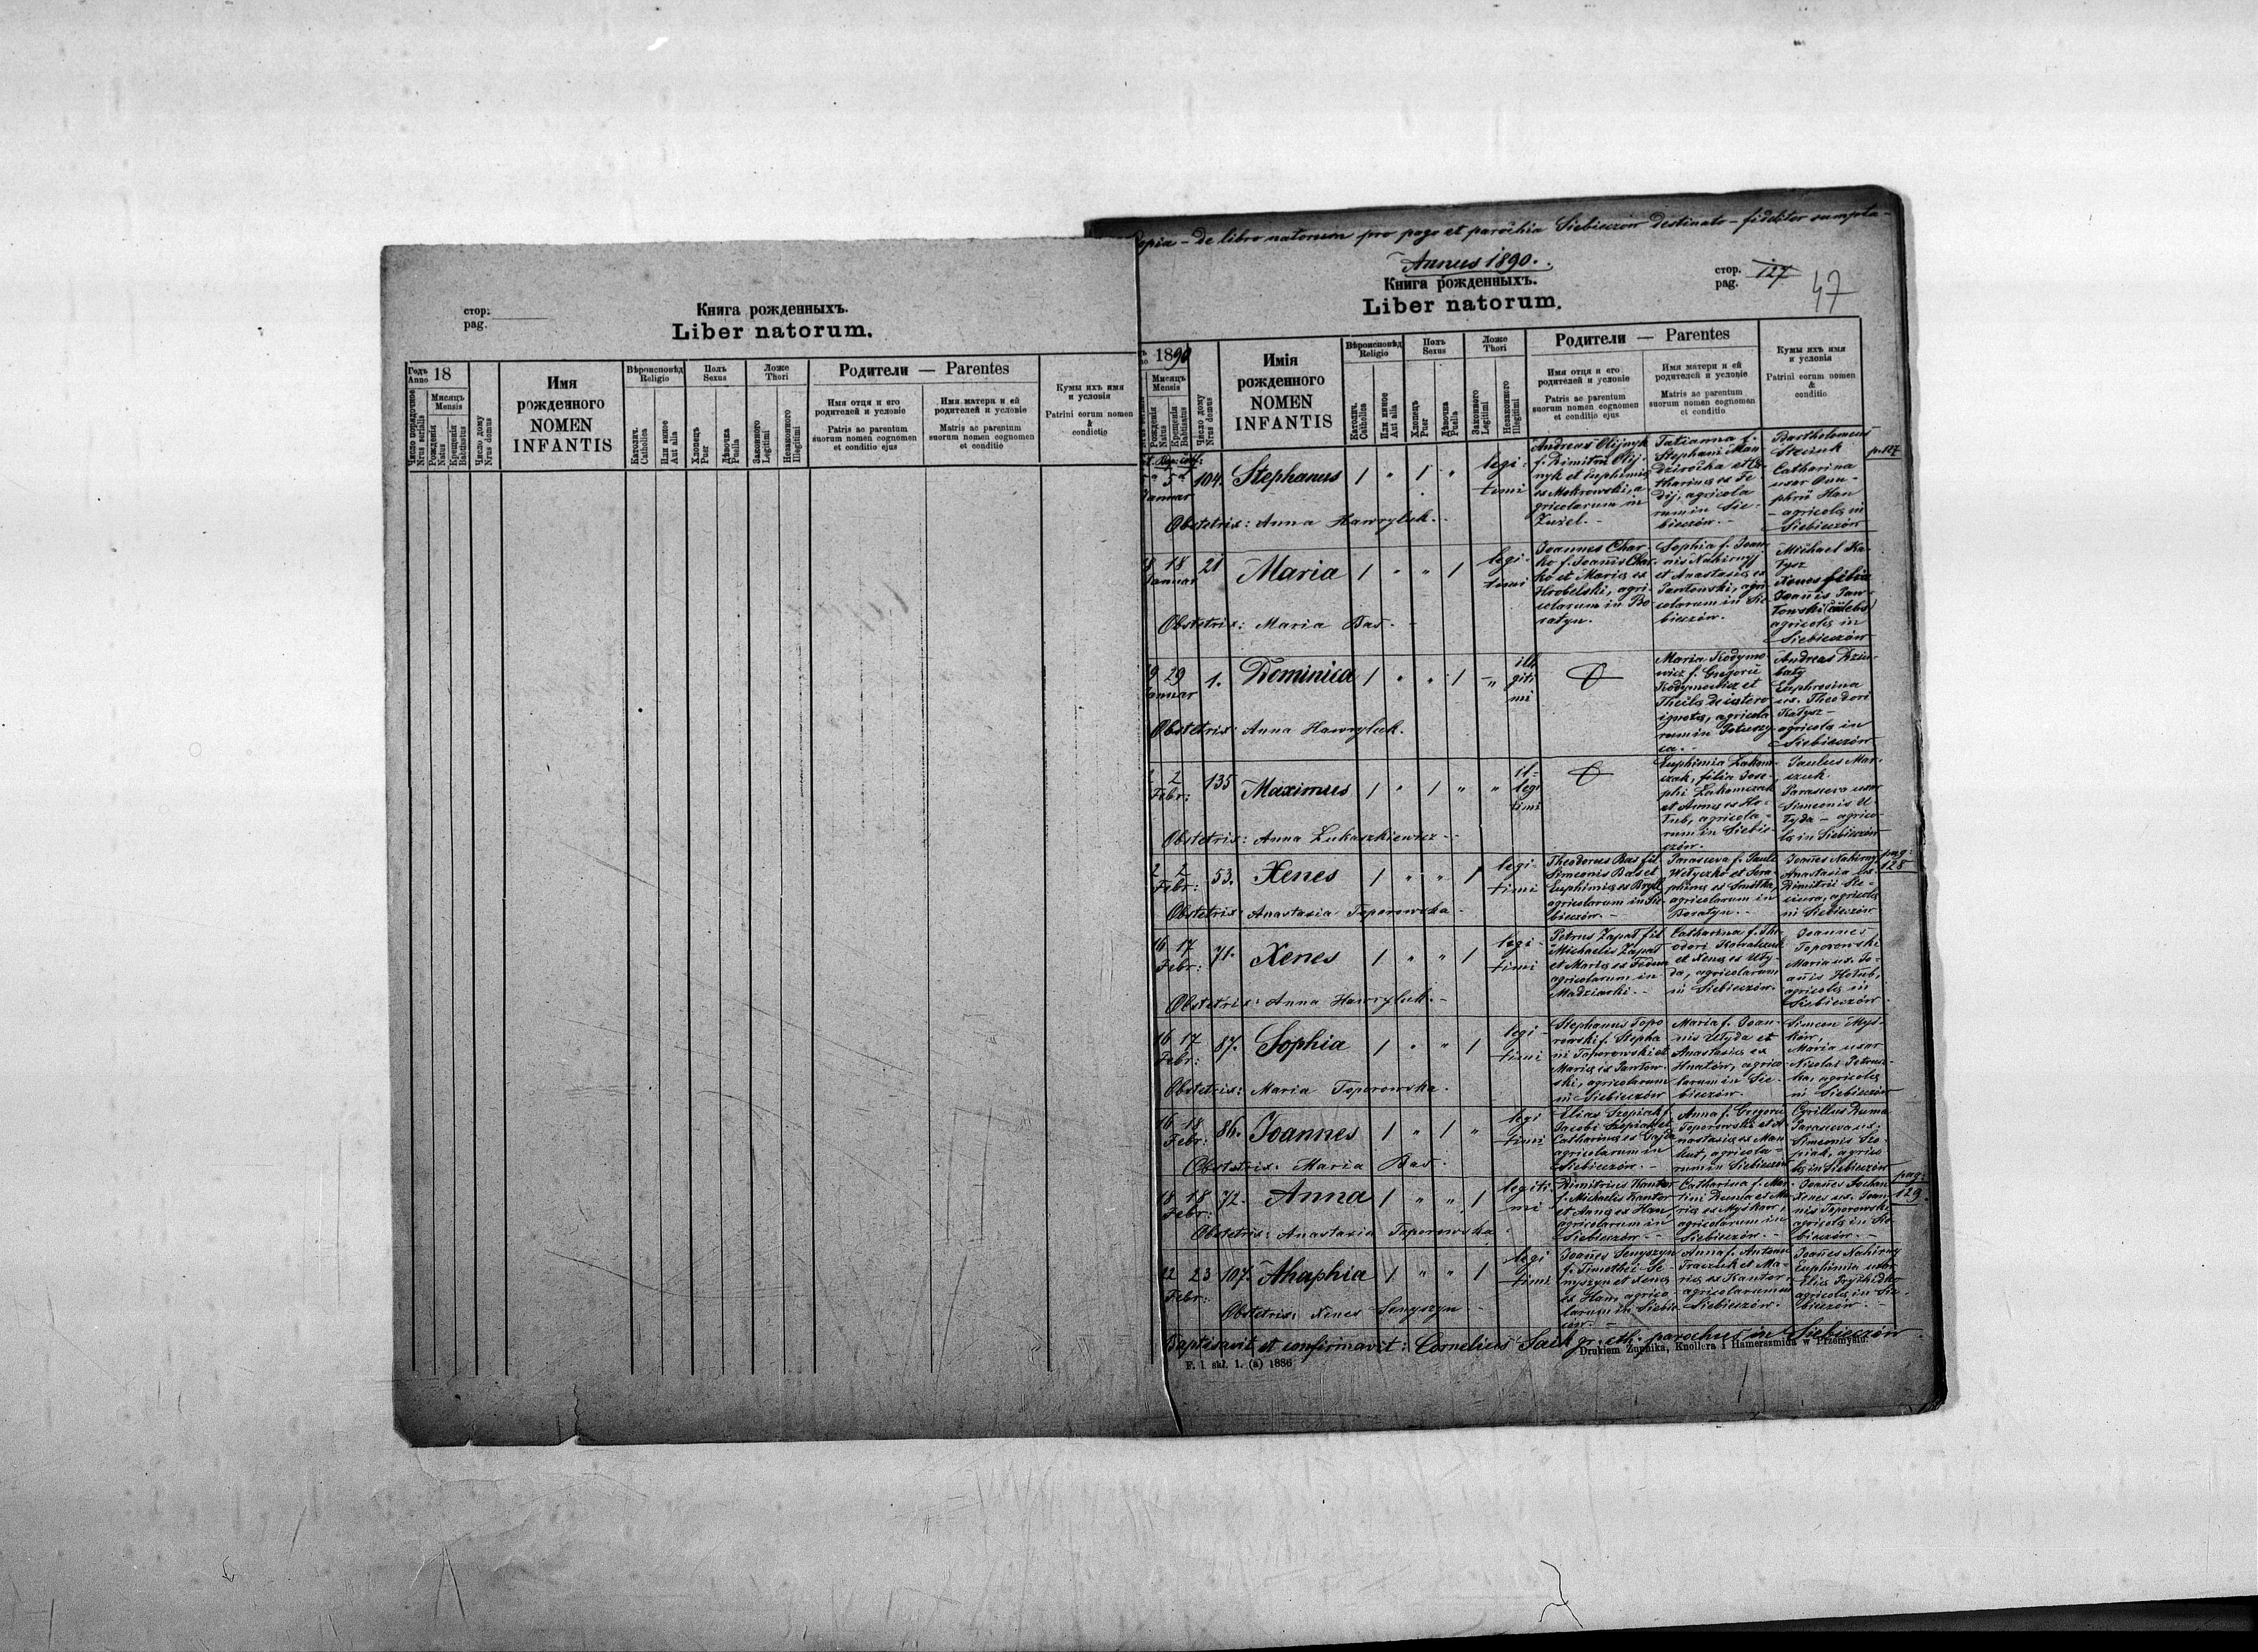 стор.
pag.
Книга рожденныхъ.
Liber natorum.
Годъ
Anno 18
Число порядочное
Nrus serialis
Мисяцъ
Mensis
Рожденія
Natus
Крещенія
Babtisatus
Число дому
Nrus domus
Имя
рожденного
NOMEN
INFANTIS
Вѣроисповѣд
Religio
Католич.
Catholica
Или инное
Aut alia
Полъ
Sexus
Хлопецъ
Puer
Дѣвочка
Puella
Ложе
Thori
Законного
Legitimi
Незаконного
Illegitimi
Родители — Parentes
Имя отця и его
родителей и условіе
Patris ac parentum
suorum nomen cognomen
et conditio ejus
Имя матери и ей
родителей и условіе
Matris ac parentum
suorum nomen cognomen
et conditio
Кумы ихъ имя
и условія
Patrini eorum nomen
&
condictio
opia - de libro natorum pro pago et parochia Siebieczów destinato - fideliter sumpta -
Annus 1890.
Книга рожденныхъ.
Liber natorum.
стор.
pag. 127
47
1890
Мисяцъ
Mensis
Рожденія
Natus
Крещенія
Babtisatus
Число дому
Nrus domus
Имія
рожденного
NOMEN
INFANTIS
Вѣроисповѣд
Religio
Католич.
Catholica
Или инное
Aut alia
Полъ
Sexus
Хлопецъ
Puer
Дѣвочка
Puella
Ложе
Thori
Законного
Legitimi
Незаконного
Illegitimi
Родители — Parentes
Имя отця и его
родителей и условіе
Patris ac parentum
suorum nomen cognomen
et conditio ejus
Имя матери и ей
родителей и условіе
Matris ac parentum
suorum nomen cognomen
et conditio
Кумы ихъ имя
и условія
Patrini eorum nomen
&
conditio
5
Januar
104. Stephanus 1 " 1 " legi-
timi
Andreas Olijnyk
f. Dimitrii Olij-
nyk et Euphimiæ
ex Mokrowski, a-
gricolarum in
Zużel. -
Tatianna f.
Stephani Man
dzirocha et Ca
tharinæ ex Fe
dij, agricola
rum in Sie-
bieczów. -
Bartholomeus
Steciuk
Catharina
uxor Onu-
phrii Han
- agricolæ in
Siebieczów
p. 127
Obstetrix: Anna Hawryluk. -
18 Januar
21 Maria 1 " " 1 legi-
timi
Joannes Char
ko f. Joanis Char
ko et Mariæ ex
Hrobelski, agri-
colarum in Bo-
ratyn.
Sophia f. Joan
nis Nahirnyj
et Anastasiæ ex
Pawłowski, agri
colarum in Sie
bieczów.
Michael Ka-
łysz
Xenes filia
Joanis Paw-
łowski (cælebs)
agricolæ in
Siebieczów
Obstetrix: Maria Bas. -
29
Januar
1. Dominica 1 " " 1 - " ille
giti
mi
Maria Kodymo-
wicz f. Gregorii
Kodymowicz et
Theclæ de cætero
ignotæ, agricola
rum in Poturzy-
ca. -
Andreas Dziu-
baty
Euphrosina
ux. Theodori
Kałysz -
agricola in
Siebieczów
Obstetrix: Anna Hawryluk.
2 2
Febr:
135 Maximus 1 " 1 " " il-
legi
timi
Euphimia Zakom-
czak, filia Jose-
phi Zakomczak
et Annæ ex Ho-
łub, agricola-
rum in Siebie-
czów.
Paulus Mar-
czuk
Parasceva uxor
Simeonis U-
łyda - agrico-
læ in Siebieczów
Obstetrix: Anna Łukaszkiewicz -
2 2
Febr:
53. Xenes 1 " " 1 legi-
timi
Theodorus Bas fil
Simeonis Bas et
Euphimiæ ex Bryll
agricolarum in Sie-
bieczów. -
Parasceva f. Pauli
Wełyczko et Sera-
phinæ ex Smitka
agricolarum in
Boratyn. -
Joanes Nahirny
Anastasia ux.
Dimitrii Ste-
ciura, agricolæ
in Siebieczów
pag:
128
Obstetrix: Anastasia Toporowska -
16 17
Febr:
71. Xenes 1 " " 1 legi-
timi
Petrus Zapał fil
Michaelis Zapał
et Mariæ ex Fedun
agricolarum in
Madziarki. -
Catharina f. The-
odori Kowalczuk
et Xenæ ex Uły-
da, agricolarum
in Siebieczów.
Joannes
Toporowski
Maria ux. Jo-
anis Hołub,
agricolæ in
Siebieczów
Obstetrix: Anna Hawryluk. -
16 17
Febr:
87. Sophia 1 " " 1 legi-
timi
Stephanus Topo
rowski f. Stepha
ni Toporowski et
Mariæ ex Pawłow-
ski, agricolarum
in Siebieczów
Maria f. Joan-
nis Ułyda et
Anastasiæ ex
Hnatów, agrico
larum in Sie-
bieczów.
Simeon Myś-
ków,
Maria uxor
Nicolai Petrusz-
ka, agricolæ
in Siebieczów
Obstetrix: Maria Toporowska.
16 18
Febr:
86. Joannes 1 " 1 " legi
timi
Elias Szopiak f.
Jacobi Szopiak et
Catharinæ ex Gajda
agricolarum in
Siebieczów. -
Anna f. Gregorii
Toporowski et A-
nastasiæ ex Man
agricola-
rum in Siebieczów
Cyrillus Duma
Parasceva ux.
Simeonis Szo-
piak, agrico
læ in Siebieczów
Obstetrix: Maria Bas.
18 18
Febr:
72. Anna 1 " " 1 legiti-
mi
Dimitrius Kantor
f. Michaelis Kantor
et Annæ ex Han,
agricolarum in
Siebieczów -
Catharina f. Mar-
tini Duma et Ma
riæ ex Myśków,
agricolarum in
Siebieczów. -
Joanes Sochan
Xenes ux. Joan
nis Toporowski,
agricolæ in Sie-
bieczów. -
pag:
129.
Obstetrix: Anastasia Toporowska
22 23
Febr:
107. Ahaphia 1 " " 1 legi
timi
Joanes Senyszyn
f. Timothei Se-
nyszyn et Xenæ
ex Han, agrico-
larum in Siebie-
czów. -
Anna f. Antonii
Traczuk et Ma-
riæ ex Kantor
agricolarum in
Siebieczów.
Joanes Nahirny
Euphimia uxor
Eliæ
agricolæ in Sie-
bieczów. -
Obstetrix: Xenes Senyszyn -
Baptisavit et confirmavit: Cornelius Saik gr. cth. parochus in Siebieczów.
Drukiem Żupnika, Knollera i Hamerszmida w Przemyślu.
F. 1 skł. 1. (a) 1886